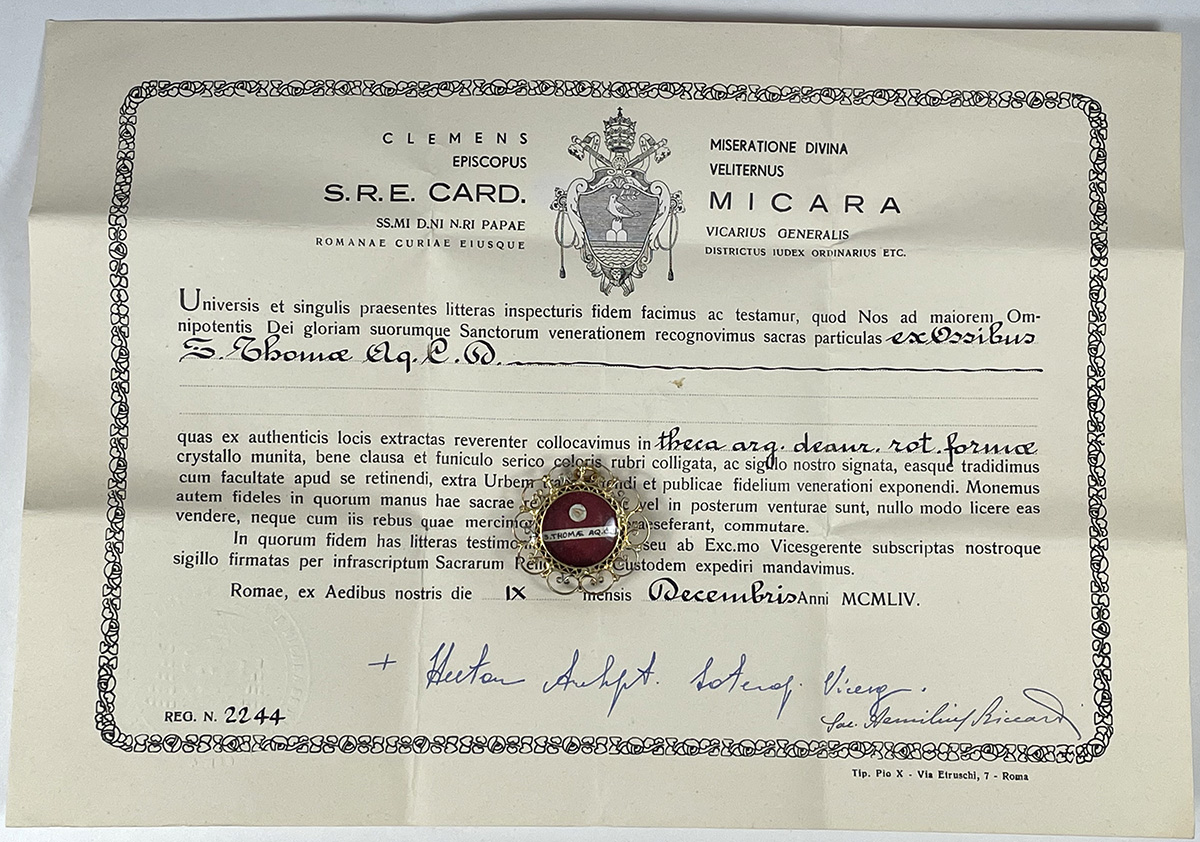 CLEMENS MISERATIONE DIVINA
EPISCOPUS VELITERNUS
S.R.E. CARD. MICARA
SS.MI D.NI N.RI PAPAE VICARIUS GENERALIS
ROMANAE CURIAE EIUSQUE DISTRICTUS IUDEX ORDINARIUS ETC.
Universis et singulis praesentes litteras inspecturis fidem facimus ac testamur, quod Nos ad maiorem Om-
nipotentis Dei gloriam suorumque Sanctorum venerationem recognovimus sacras particulas ex Ossibus
S. Thomæ Aq. C. D.
quas ex authenticis locis extractas reverenter collocavimus in theca arg. deaur. rot. formæ
crystallo munita, bene clausa et funiculo serico coloris rubri colligata, ac sigillo nostro signata, easque tradidimus
cum facultate apud se retinendi, extra Urbem et publicae fidelium venerationi exponendi. Monemus
autem fideles in quorum manus hae sacrae vel in posterum venturae sunt, nullo modo licere eas
vendere, neque cum iis rebus quae mercimo aeseferant, commutare.
S. THOMÆ AQ. C.
In quorum fidem has litteras testimo seu ab Exc.mo Vicesgerente subscriptas nostroque
sigillo firmatas per infrascriptum Sacrarum Reli Custodem expediri mandavimus.
Romae, ex Aedibus nostris die IX mensis Decembris Anni MCMLIV.
+ Hector Viceg.
REG. N. 2244
Sac. Aemilius Riccardi
Tip. Pio X - Via Etruschi, 7 - Roma